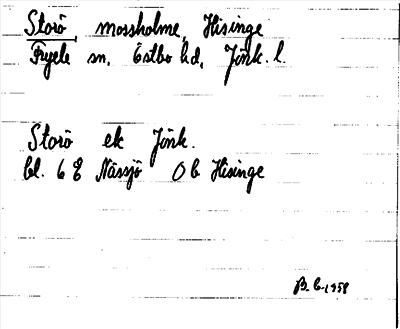 Storö, mossholme, Hisinge
Fryele sn, Östbo hd, Jönk. l.
Storö ek Jönk.
bl. 6 E Nässjö Ob Hisinge
B. C-1958